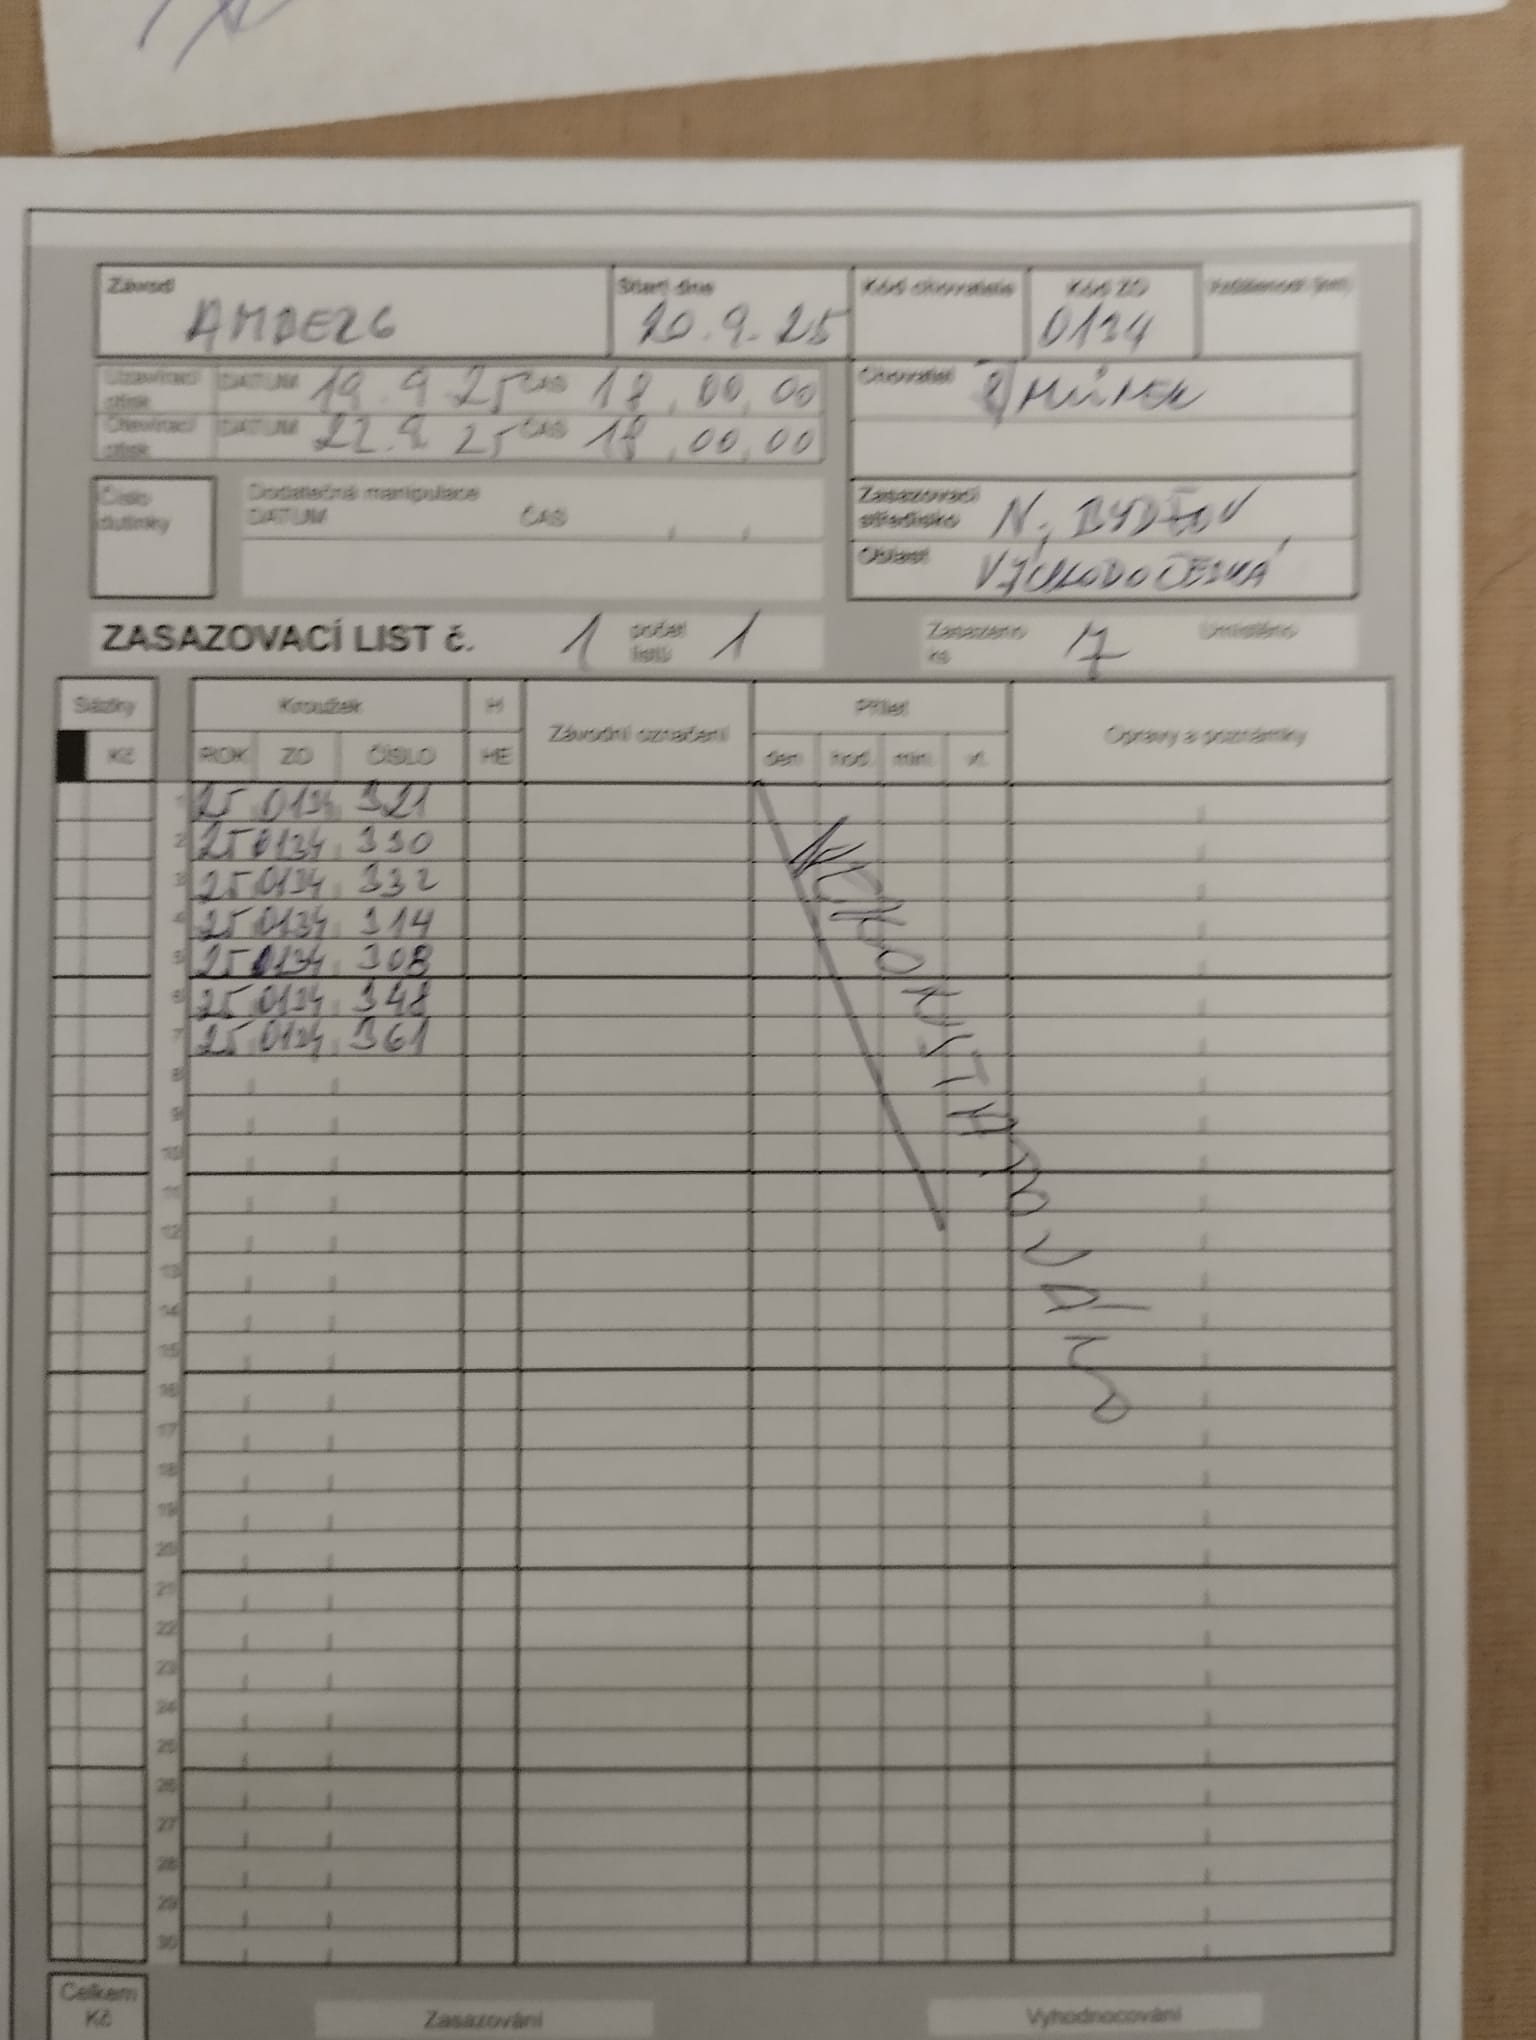 Závod Start dne Kód chovatele Kód ZO Vzdálenost (km)
AMBERG 20.9.25 0134
Uzavírací otisk DATUM 19.9 25 ČAS 18,00,00 Chovatel MŮTEK
Otevírací otisk DATUM 22.9 25 ČAS 18,00,00
Číslo dutinky Dodatečná manipulace Zasazovací středisko N, BYDŽOV
DATUM ČAS
Oblast VÝCHODOČESKÁ
ZASAZOVACÍ LIST č. 1 počet listů 1 Zasazeno ks 7 Umístěno
Sázky Kroužek H Závodní označení Přílet Opravy a poznámky
Kč ROK ZO ČÍSLO HE den hod. min. vt.
1 25 0134 321
2 25 0134 330
3 25 0134 332
4 25 0134 314
5 25 0134 308
6 25 0134 348
7 25 0134 361
NEKONSTATOVÁNO
8
9
10
11
12
13
14
15
16
17
18
19
20
21
22
23
24
25
26
27
28
29
30
Celkem Kč Zasazování Vyhodnocování